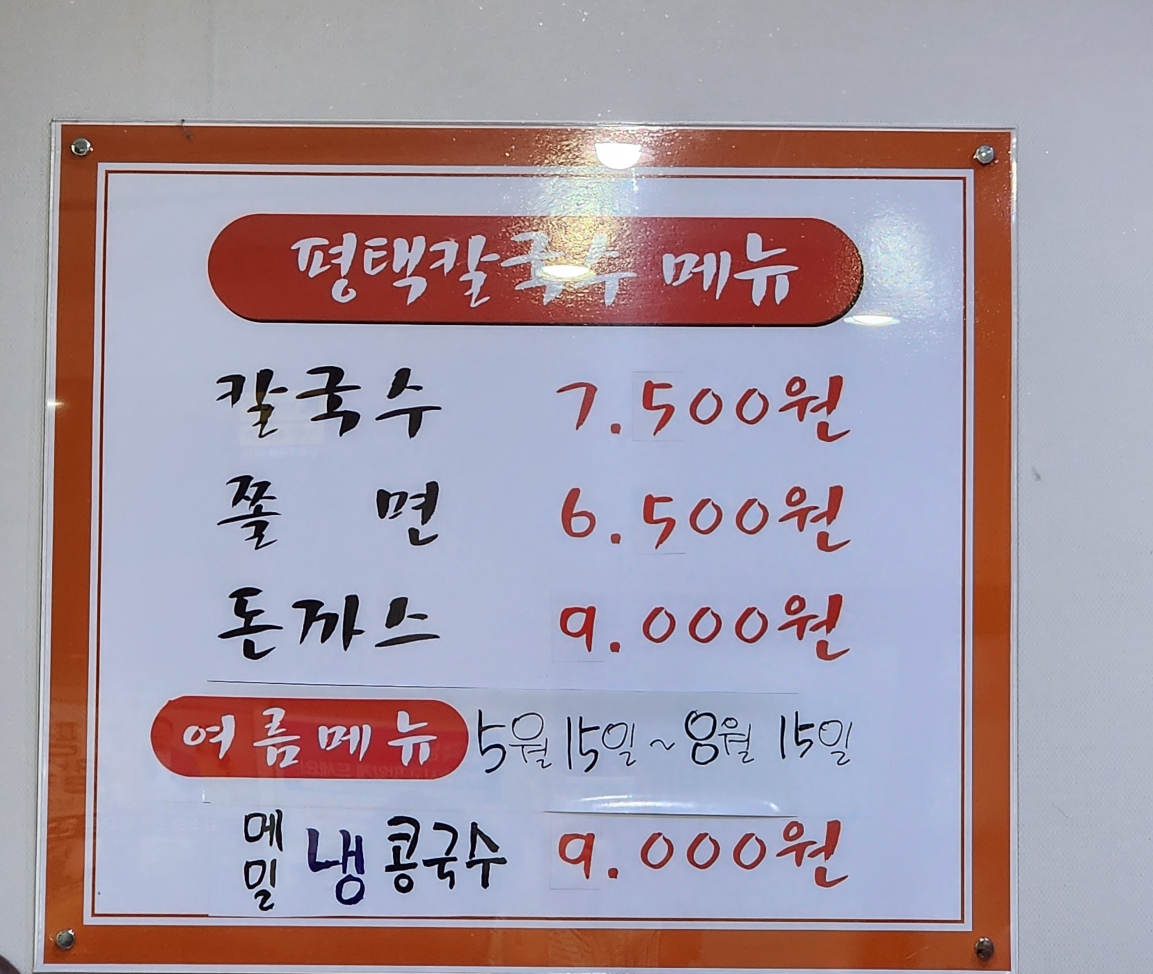 평택칼국수 메뉴
칼국수 7.500원
쫄 면 6.500원
돈까스 9.000원
여름메뉴 5월 15일 ~ 8월 15일
메밀 냉콩국수 9.000원